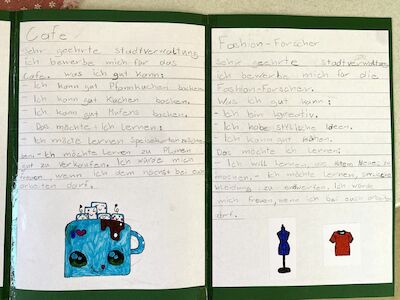 Cafe
Sehr geehrte Stadtverwaltung
ich bewerbe mich für das
Cafe. was ich gut kann:
- Ich kann gut Pfannkuchen backen.
- Ich kann gut Kuchen backen.
- Ich kann gut Mufens backen.
Das möchte ich Lernen:
- Ich möchte Lernen Speisekarten
- Ich möchte Lernen zu Planen
gut zu verkaufen. Ich würde mich
freuen, wenn ich dem nächst bei euch
arbeiten darf.
Fashion-Forscher
Sehr geehrte Stadtverwaltung
ich bewerbe mich für die
Fashion-Forscher.
Was ich gut kann:
- Ich bin kreativ.
- Ich habe stylische Ideen.
- Ich kann gut
Das möchte ich Lernen:
- Ich will Lernen, aus Altem Neues zu
machen. - Ich möchte Lernen,
kleidung zu entwerfen. Ich würde
mich freuen, wenn ich bei euch arbeiten
darf.